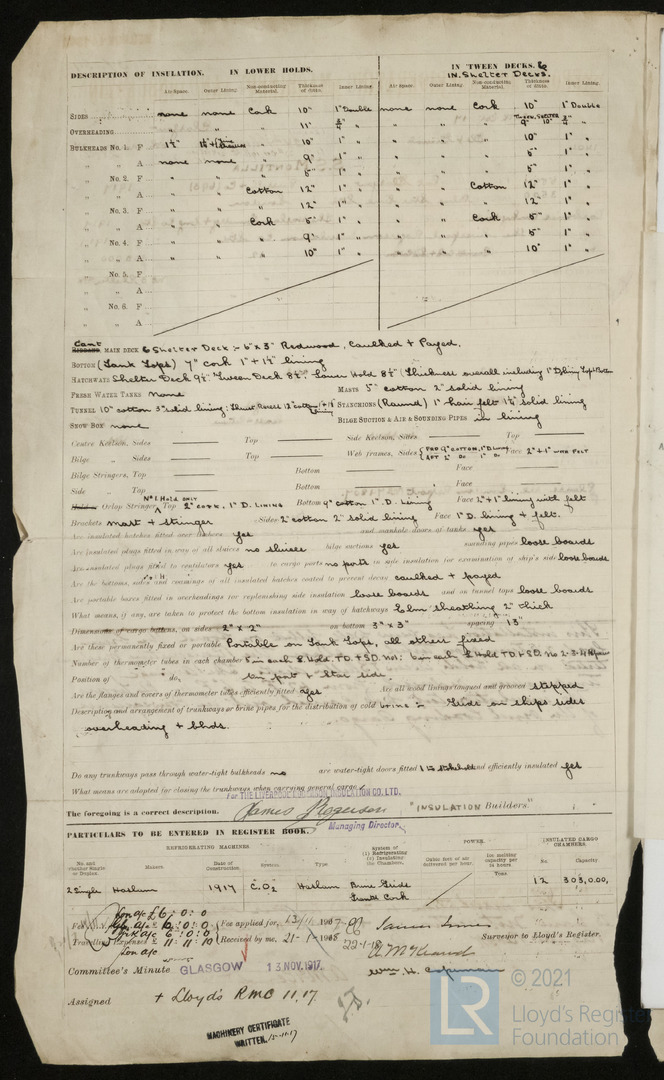 DESCRIPTION OF INSULATION. IN LOWER HOLDS. IN TWEEN DECKS. &
IN. Shelter Decks.
Air Space. Outer Lining. Non-conducting Material. Thickness of ditto. Inner Lining. Air Space. Outer Lining. Non-conducting Material. Thickness of ditto. Inner Lining.
SIDES none none Cork 10" 1" Double none none Cork 10" 1" Double
OVERHEADING " " " 11" 3/4" " " " " 9" 10" 3/4" "
BULKHEADS No. 1. F 1½" " 10" 1" " " " " 10" 1" "
" " A none none " 9" 1" " " " " 5" 1" "
" No. 2. F " " " 5" 1" " " " " 5" 1" "
" " A " " Cotton 12" 1" " " " Cotton 12" 1" "
" No. 3. F " " " 12" 1" " " " " 12" 1" "
" " A " " Cork 5" 1" " " " Cork 5" 1" "
" No. 4. F " " " 9" 1" " " " " 5" 1" "
" " A " " " 10" 1" " " " " 10" 1" "
" No. 5. F
" " A
" No. 6. F
" " A
MAIN DECK & Shelter Deck :- 6" x 3" Redwood, Caulked + Payed.
BOTTOM (Tank Tops) 7" cork 1" + 1½" lining
HATCHWAYS Shelter Deck 9½" Tween Deck 8½", Lower Hold 8½" (Thickness overall including 1" D lining
FRESH WATER TANKS none MASTS 5" cotton 2" solid lining
TUNNEL 10" cotton 3" solid lining: Thrust Recess 12" cotton lining STANCHIONS (Round) 1" hair felt 1¼" solid lining
SNOW BOX none BILGE SUCTION & AIR & SOUNDING PIPES in lining
Centre Keelson, Sides Top Side Keelson, Sides Top
Bilge " Sides Top Web frames, Sides FWD 9" COTTON, 1" D LINING AFT 2" DO 1" D. Face 2" + 1" WITH FELT
Bilge Stringers, Top Bottom Face
Side " Top Bottom Face
No 1 Hold only
Orlop Stringer, Top 2" CORK, 1" D. LINING Bottom 9" cotton 1" D. Lining Face 2" + 1" lining with felt
Brackets mast + stringer Sides 2" cotton 2" solid lining Face 1" D. lining + felt.
Are insulated hatches fitted over bunkers yes and manhole doors of tanks yes
Are insulated plugs fitted in way of all sluices no sluices bilge suctions yes sounding pipes loose boards
Are insulated plugs fitted to ventilators yes to cargo ports no ports in side insulation for examination of ship's side loose boards
Are the bottoms, sides and coamings of all insulated hatches coated to prevent decay caulked + payed
Are portable boxes fitted in overheadings for replenishing side insulation loose boards and on tunnel tops loose boards
What means, if any, are taken to protect the bottom insulation in way of hatchways Elm sheathing 2" thick
Dimensions of cargo battens, on sides 2" x 2" on bottom 3" x 3" spacing 13"
Are them permanently fixed or portable Portable on Tank Tops, all others fixed
Number of thermometer tubes in each chamber
Position of do, port + Star side.
Are the flanges and covers of thermometer tubes efficiently fitted yes Are all wood linings tongued and grooved stepped
Description and arrangement of trunkways or brine pipes for the distribution of cold brine :- Grids on ships sides
overheading + blhds.
Do any trunkways pass through water-tight bulkheads no are water-tight doors fitted and efficiently insulated yes
What means are adopted for closing the trunkways when carrying general cargo
For THE LIVERPOOL INSULATION CO. LTD.
The foregoing is a correct description. James Rogerson "INSULATION Builders."
Managing Director.
PARTICULARS TO BE ENTERED IN REGISTER BOOK.
REFRIGERATING MACHINES. POWER. INSULATED CARGO CHAMBERS.
No. and whether Single or Duplex. Makers. Date of Construction. System. Type. System of (1) Refrigerating (2) Insulating the Chambers. Cubic feet of air delivered per hour. Ice melting capacity per 24 hours. No. Capacity
Tons.
2 Single Haslam 1917 C.O2 Haslam Brine Grids 12 303,000,
Cork
Lon a/c £6 : 0 : 0
Fee 10 : 0 : 0 Fee applied for, 13/11 1917
6 : 0 : 0
Travelling Expenses £ 11 : 11 : 10 Received by me, 21-1-1918 22-1-18
Lon a/c
Surveyor to Lloyd's Register.
Wm. H. Capman
Committee's Minute GLASGOW 13.NOV.1917.
Assigned + Lloyd's RMC 11,17.
MACHINERY CERTIFICATE
WRITTEN. 15-11-17
LR © 2021
Lloyd's Register
Foundation